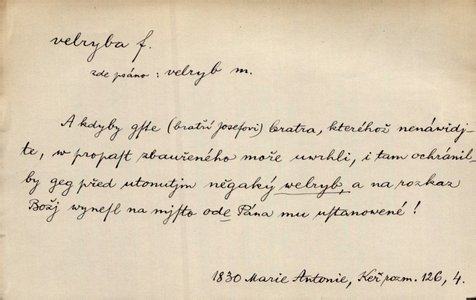 velryba f.
zde psáno: velryb m.
A kdyby gste (bratři Josefovi) bratra, kteréhož nenáwidj-
te, w propast zbauřeného moře uwrhli, i tam ochránil
by geg před utonutjm něgaký welryb, a na rozkaz
Božj wynesl na mjsto ode Pána mu ustanowené!
1830 Marie Antonie, Keř rozm. 126, 4.